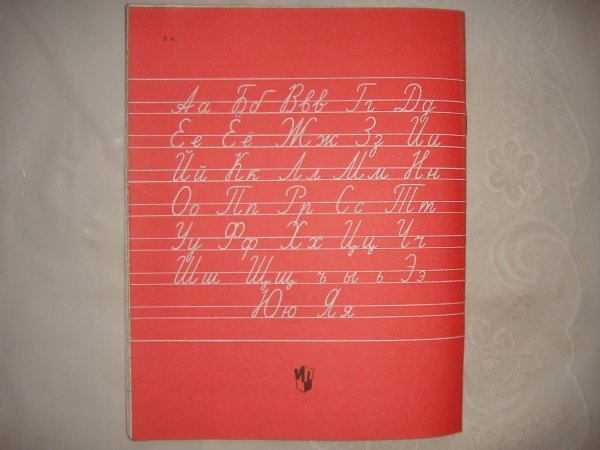 3 к.
Аа Бб Ввв Гг Дд
Ее Ёё Жж Зз Ии
Йй Кк Лл Мм Нн
Оо Пп Рр Сс Тт
Уу Фф Хх Цц Чч
Шш Щщ ъ ы ь Ээ
Юю Яя
ИП